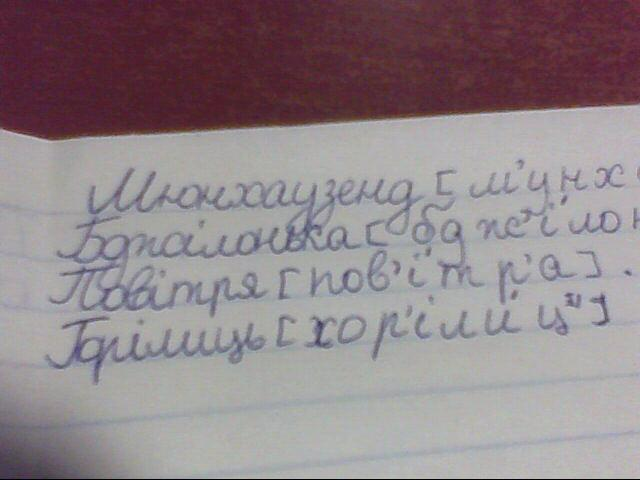 Мюнхаузенд [м'унх
Бджілонька [бдж"ілон
Повітря [пов'ітр'а].
Горілиць [хор'ілиц"]